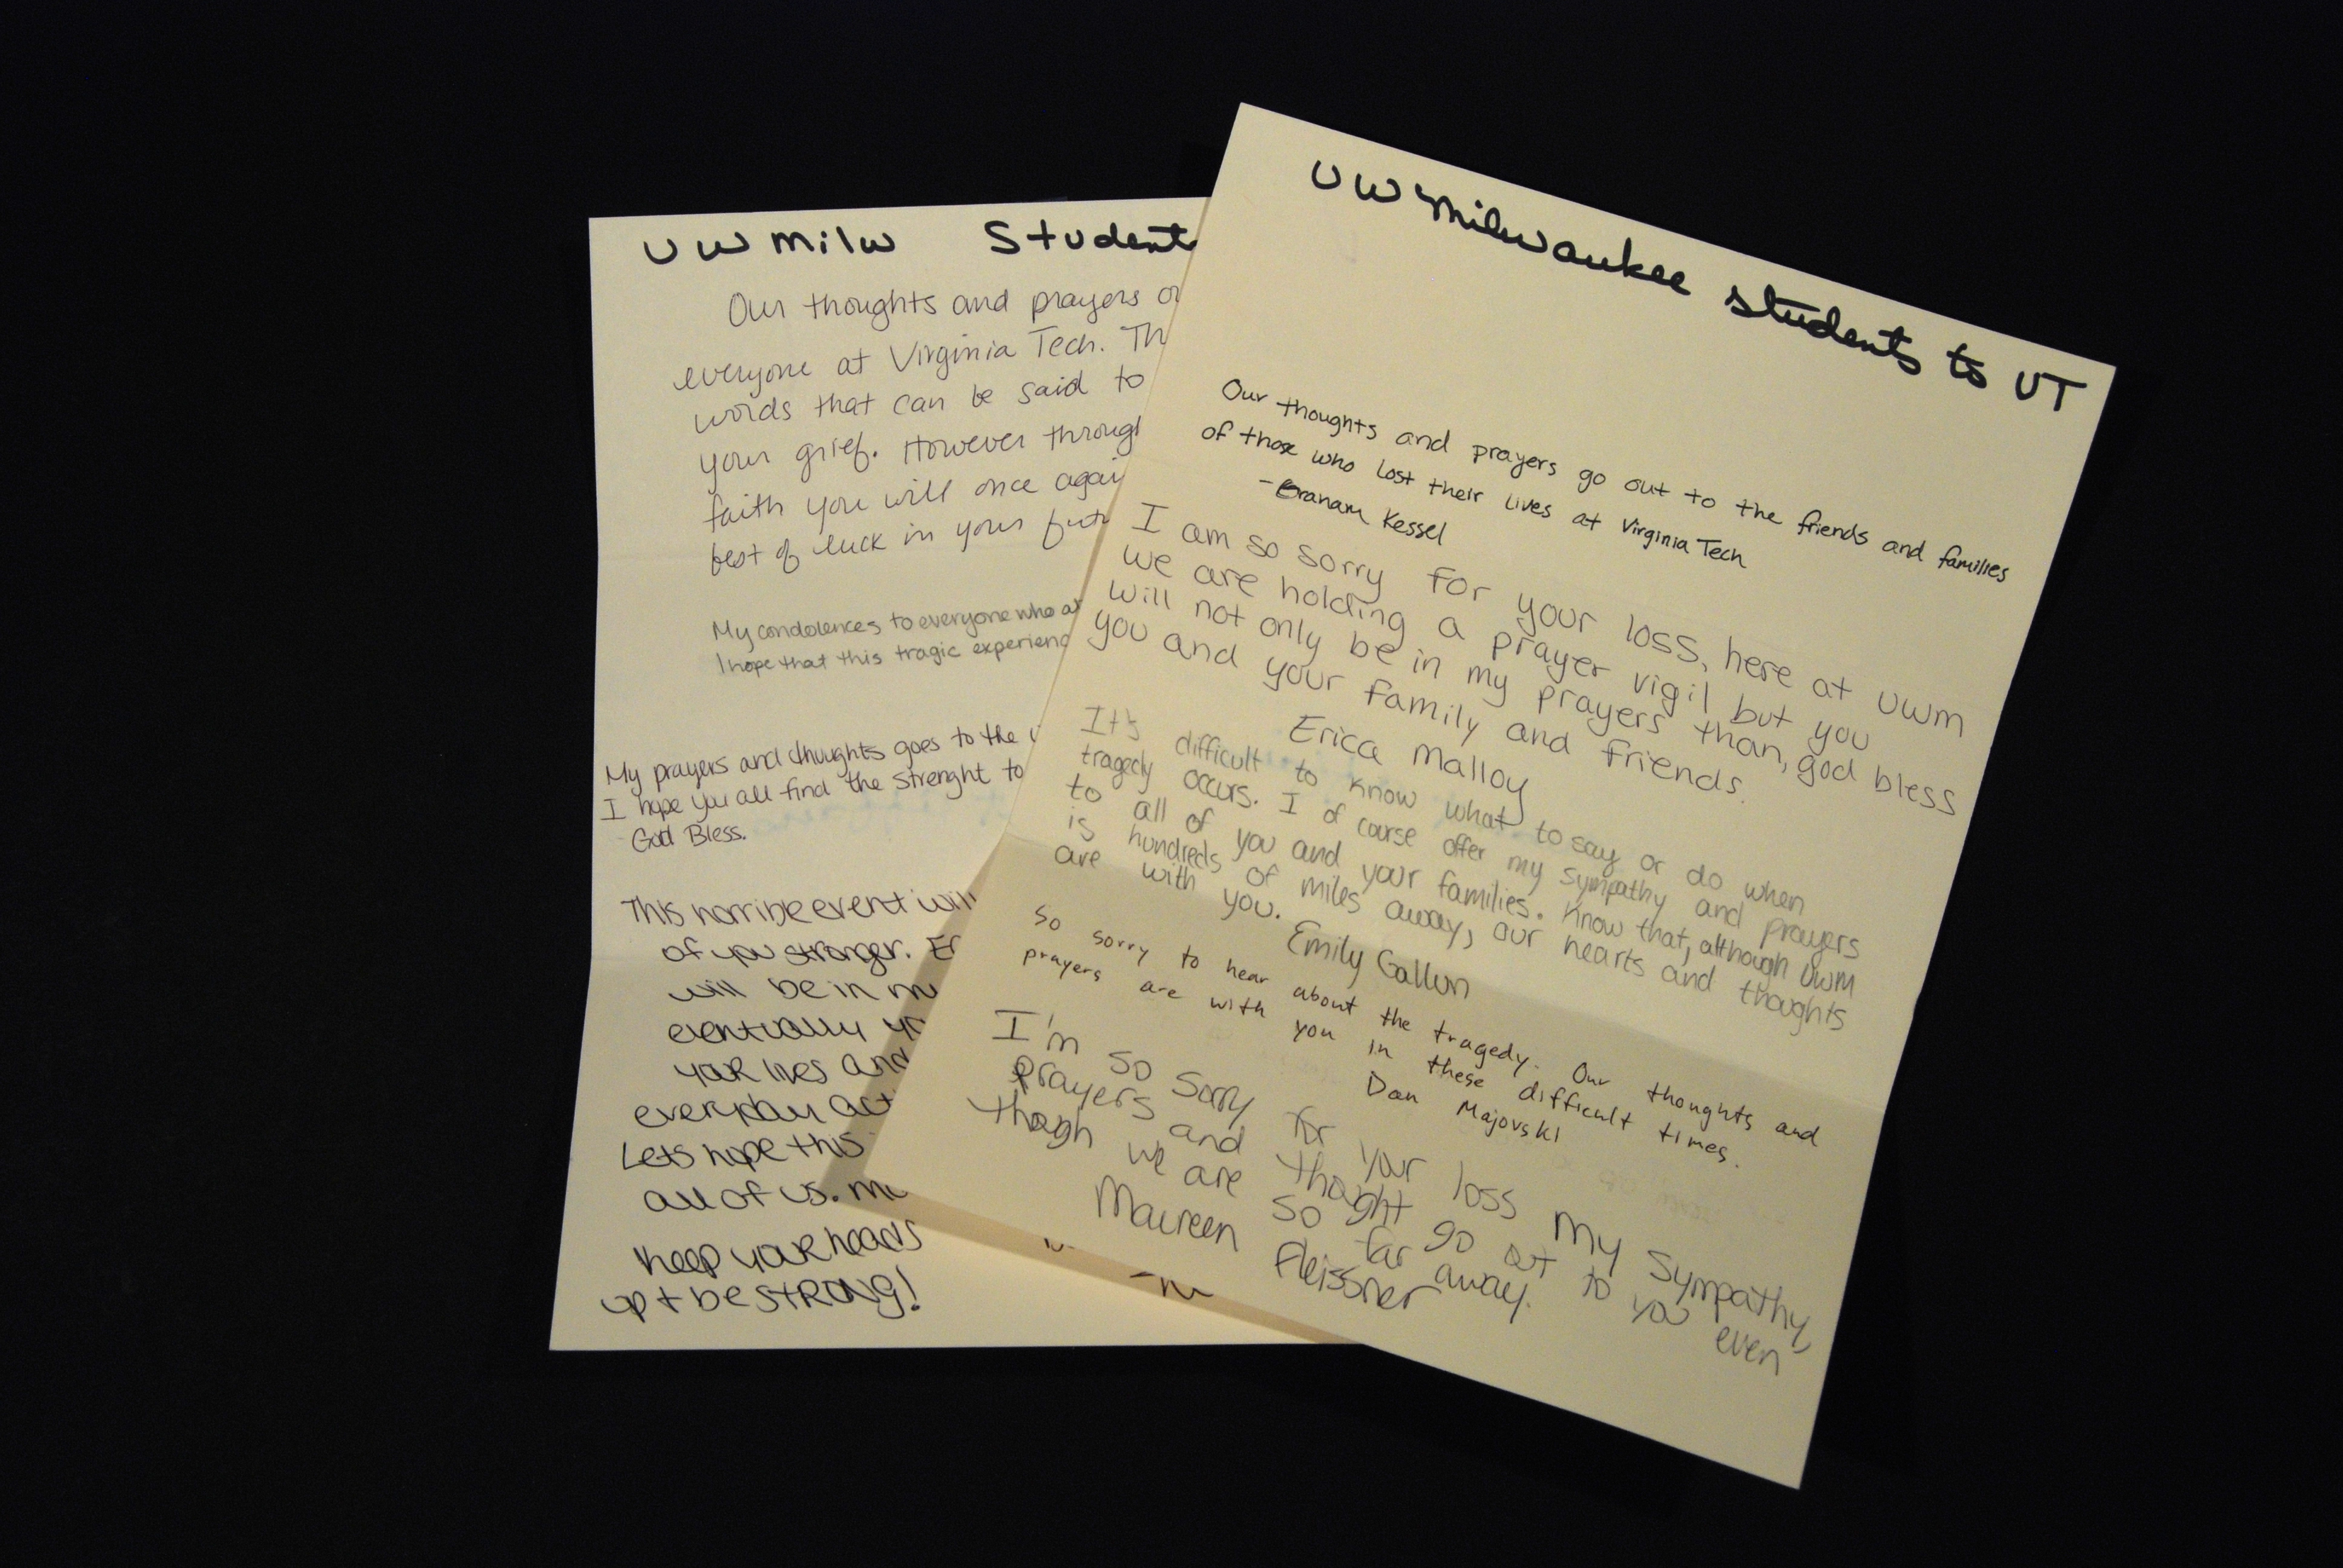 UW Milw Students
Our thoughts and prayers
everyone at Virginia Tech.
words that can be said to
your grief. However
faith you will once
best of luck in your
My condolences to everyone who
I hope that this tragic
My prayers and thoughts goes to the
I hope you all find the strenght to
God Bless.
This horrible event will
of you stronger.
will be in
eventually
your lives and
everyday
Lets hope this
all of us.
keep your heads
up + be STRONG!
UW Milwaukee students to VT
Our thoughts and prayers go out to the friends and families
of those who lost their lives at Virginia Tech
- Kessel
I am so sorry for your loss, here at UWM
we are holding a prayer vigil but you
will not only be in my prayers than, god bless
you and your family and friends.
Erica Malloy
It's difficult to know what to say or do when
tragedy occurs. I of course offer my sympathy and prayers
to all of you and your families. Know that, although UWM
is hundreds of miles away, our hearts and thoughts
are with you.
Emily Gallun
So sorry to hear about the tragedy. Our thoughts and
prayers are with you in these difficult times.
Dan Majovski
I'm so sorry for your loss My sympathy,
prayers and thought go out to you even
though we are so far away.
Maureen Fleissner